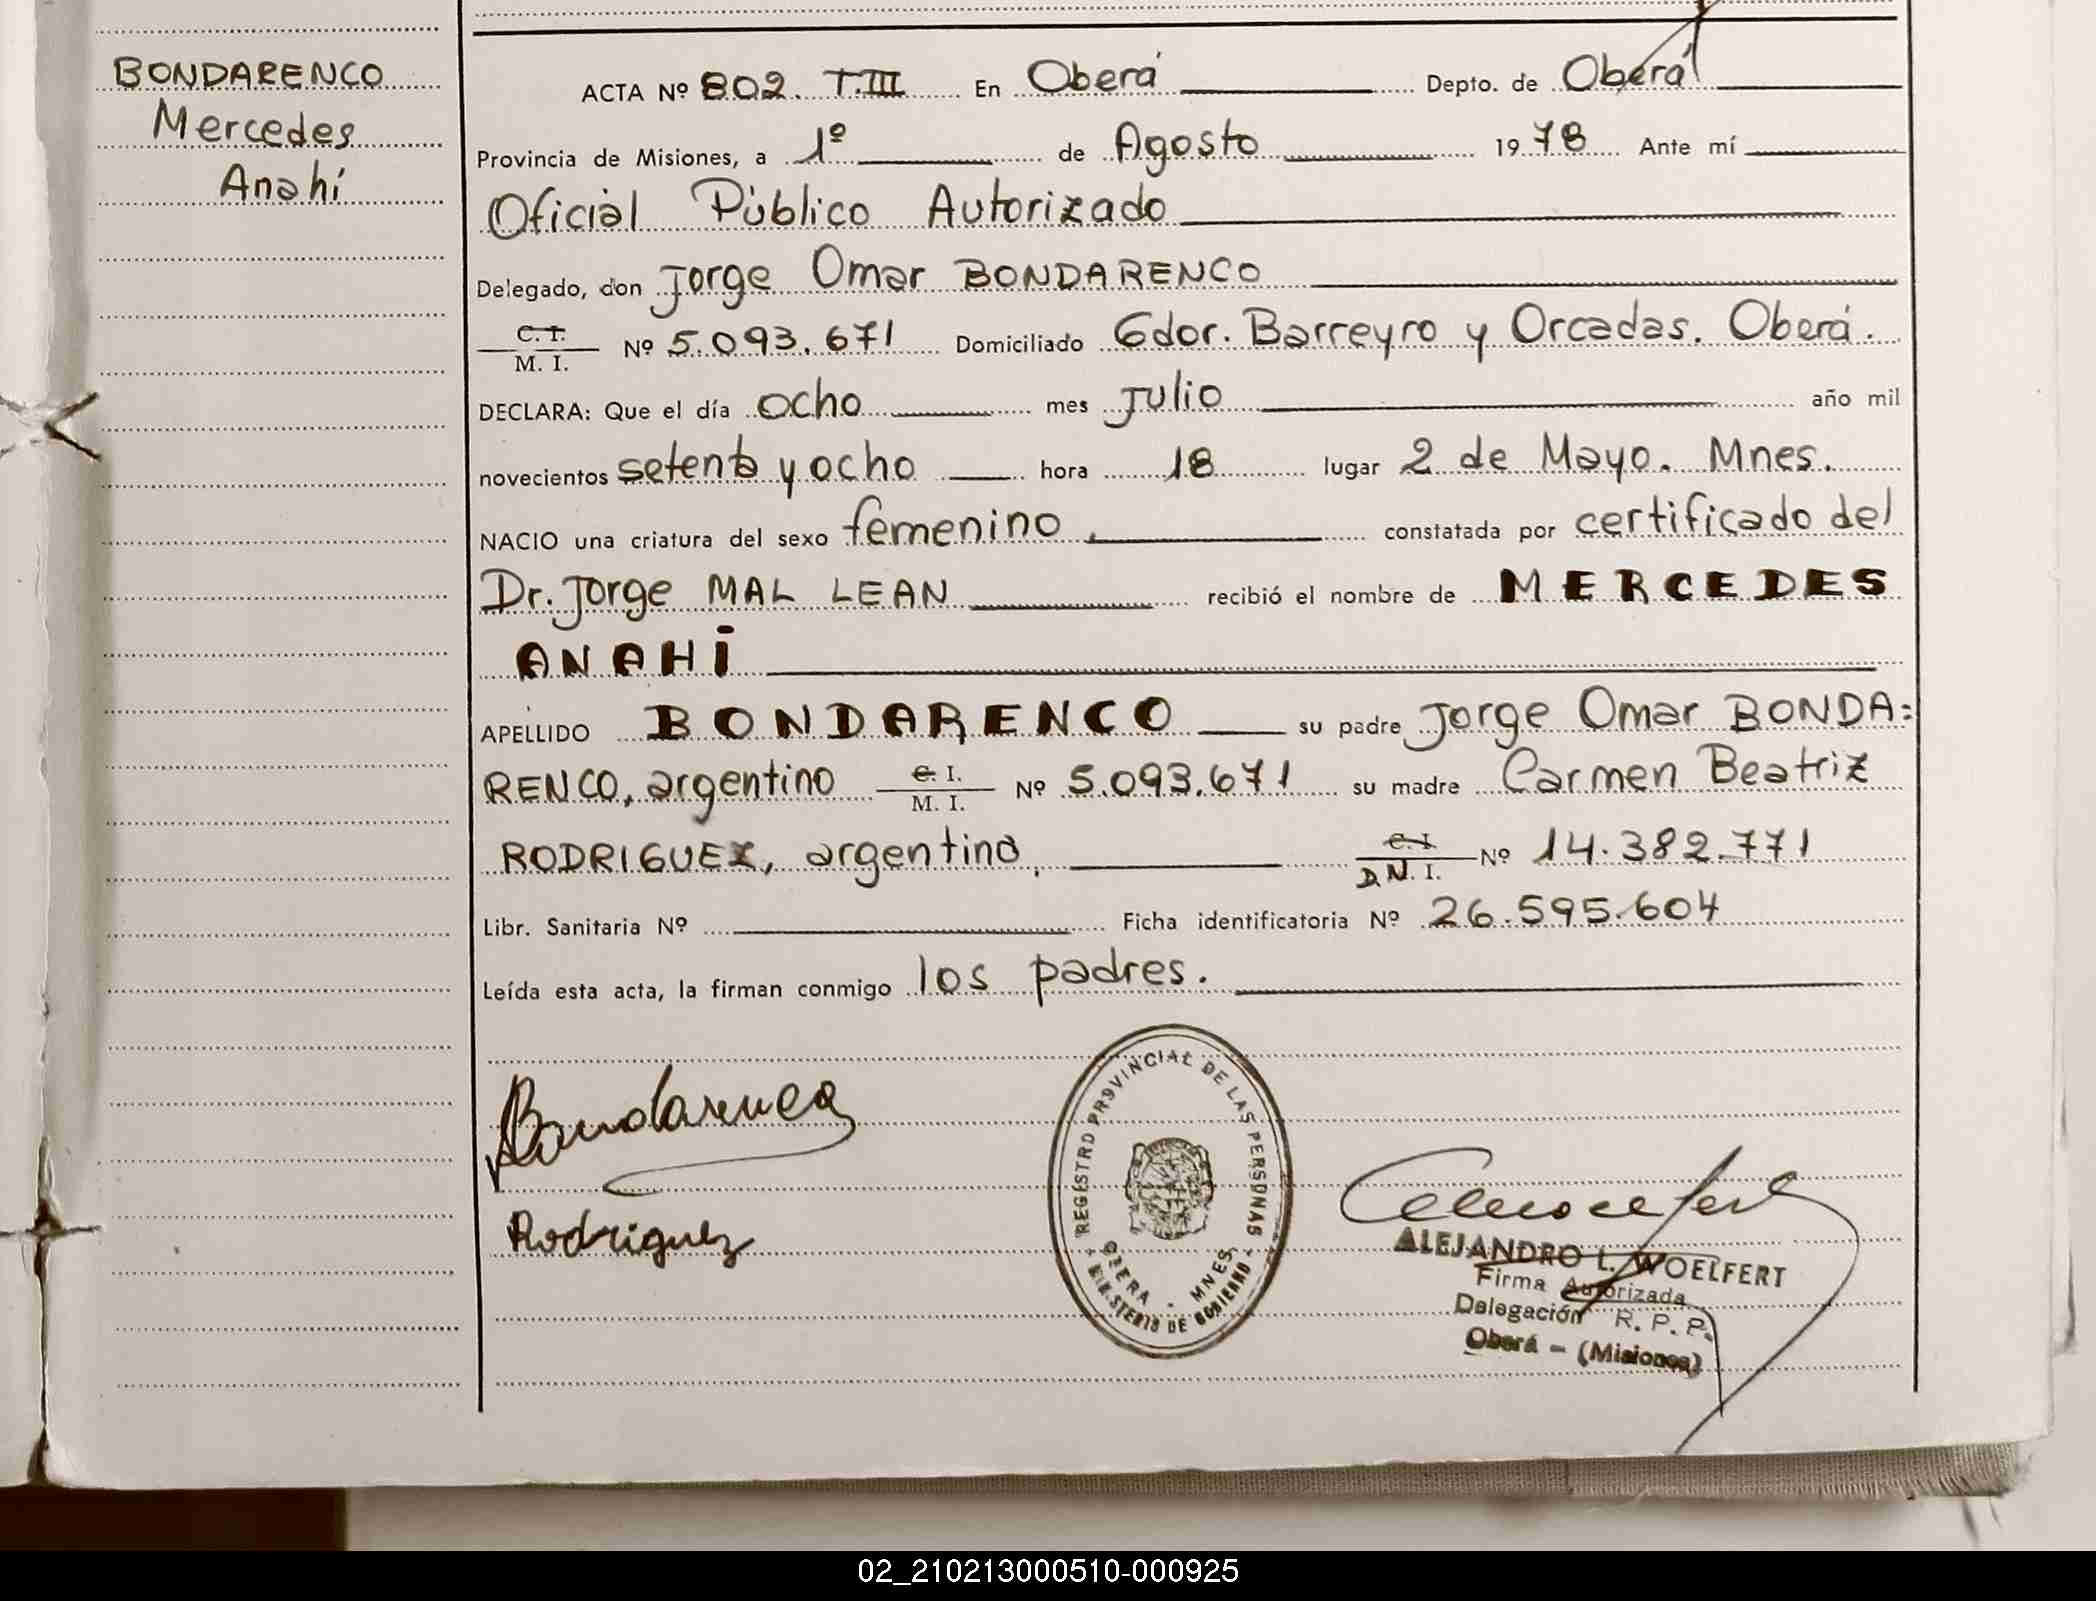 BONDARENCO
Mercedes
Anahí
ACTA Nº 802. T.III En Oberá Depto. de Oberá
Provincia de Misiones, a 1º de Agosto 19 78 Ante mí
Oficial Público Autorizado
Delegado, don Jorge Omar BONDARENCO
C. I.
M. I. Nº 5.093.671 Domiciliado Gdor. Barreyro y Orcadas. Oberá.
DECLARA: Que el día ocho mes Julio año mil
novecientos setenta y ocho hora 18 lugar 2 de Mayo. Mnes.
NACIO una criatura del sexo femenino, constatada por certificado del
Dr. Jorge MAL LEAN recibió el nombre de MERCEDES
ANAHI
APELLIDO BONDARENCO su padre Jorge Omar BONDA=
RENCO, argentino C. I. M. I. Nº 5.093.671 su madre Carmen Beatriz
RODRIGUEZ, argentina, C. I. D.N.I. Nº 14.382.771
Libr. Sanitaria Nº Ficha identificatoria Nº 26.595.604
Leída esta acta, la firman conmigo los padres.
Bondarenco
Rodriguez
REGISTRO PROVINCIAL DE LAS PERSONAS
OBERA - MNES.
MINISTERIO DE GOBIERNO
ALEJANDRO L. WOELFERT
Firma Autorizada
Delegación R. P. P.
Oberá - (Misiones)
02_210213000510-000925